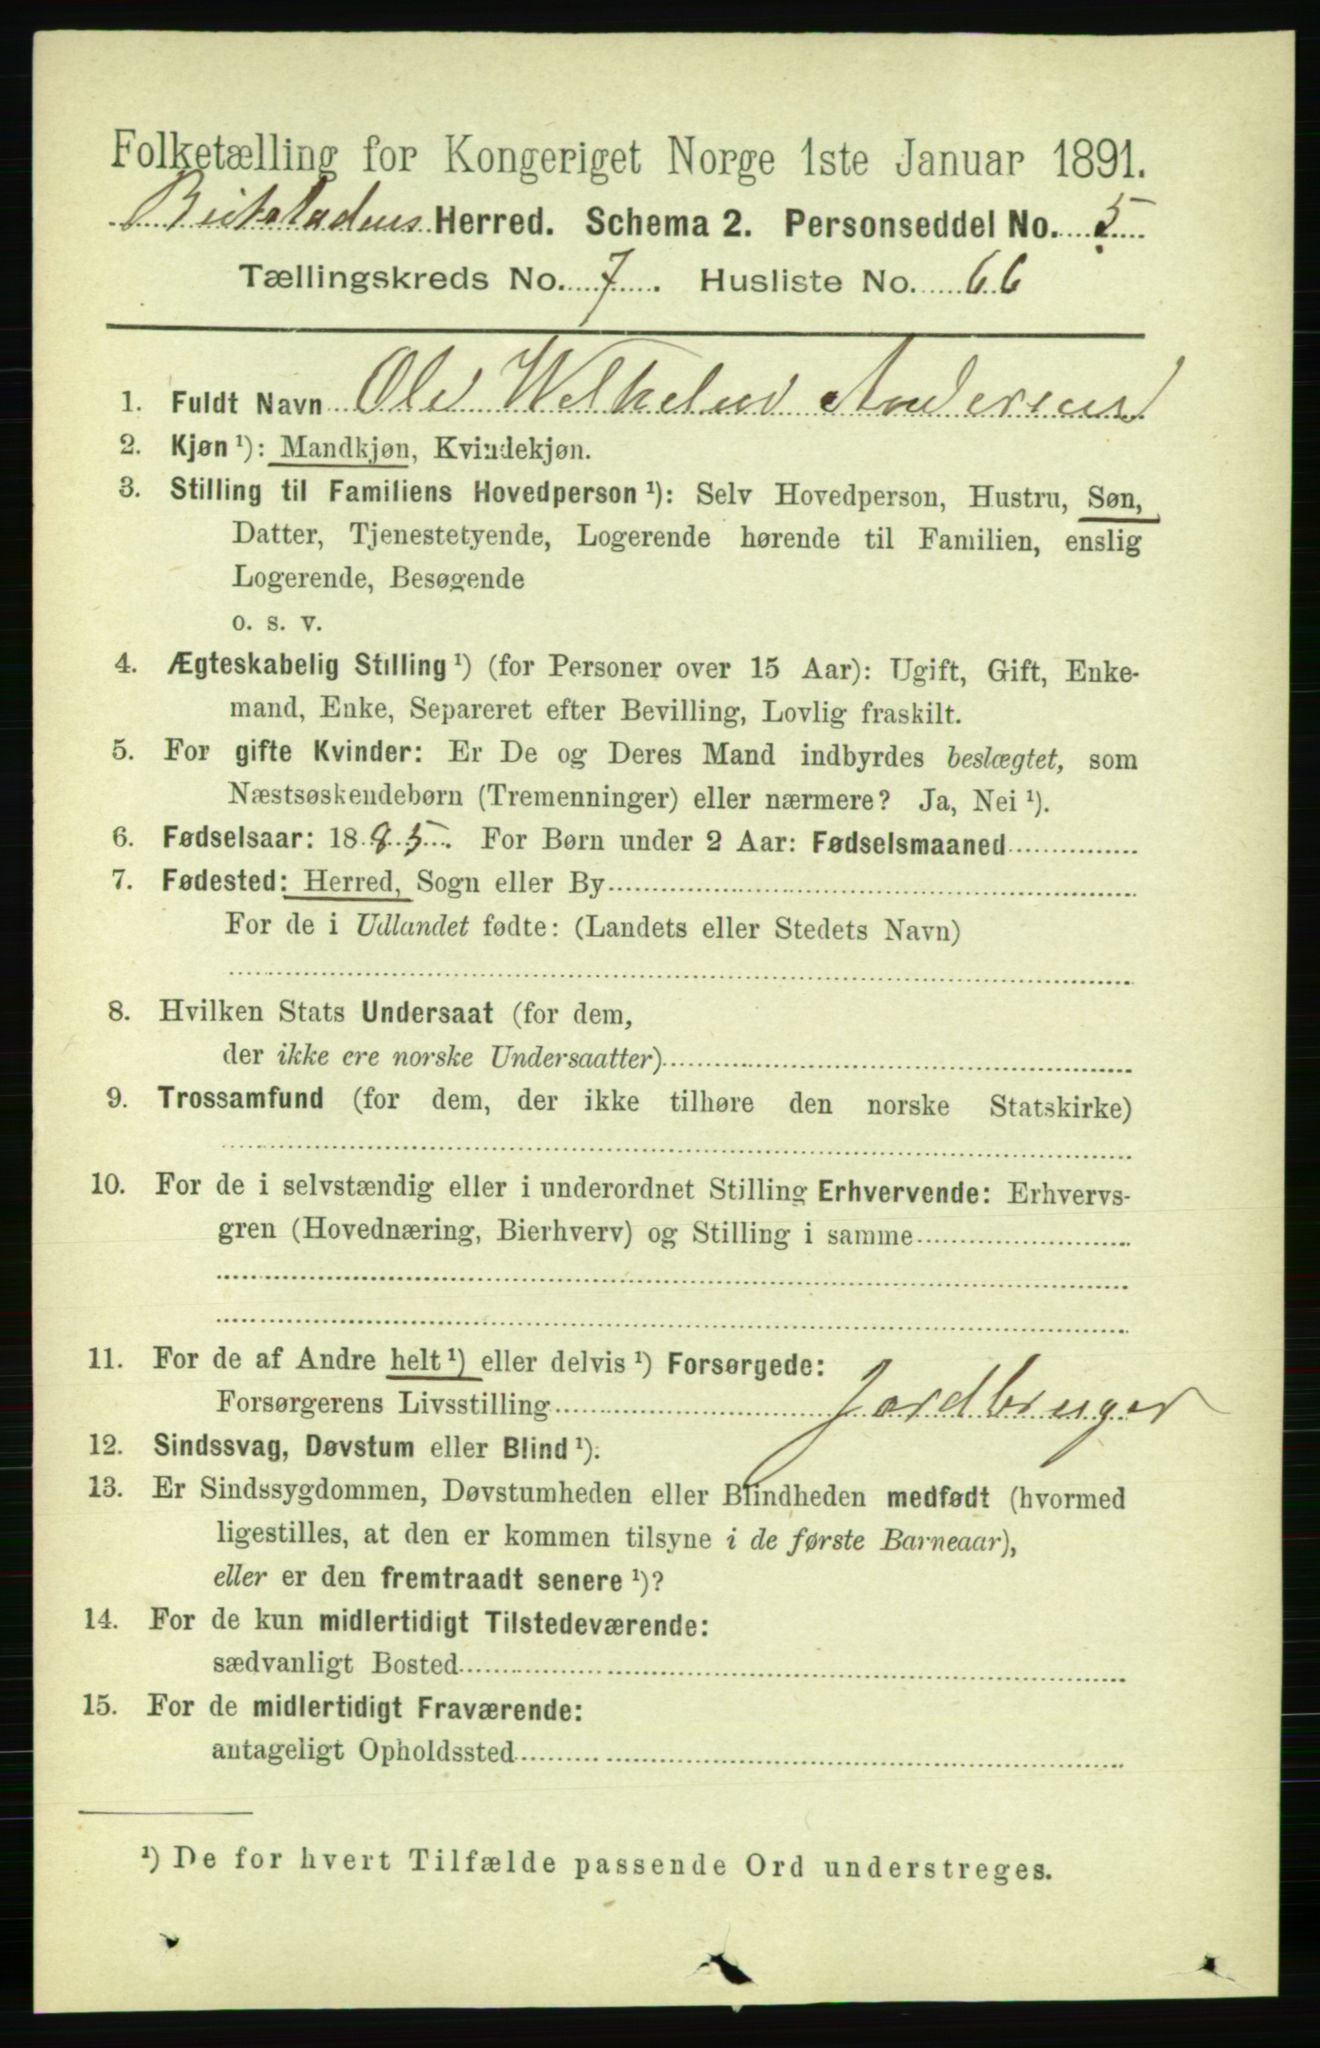 Folketælling for Kongeriget Norge 1ste Januar 1891.
Beitstadens Herred. Schema 2. Personseddel No. 5
Tællingskreds No. 7. Husliste No. 66
1. Fuldt Navn Ole Wilhelm Andersen
2. Kjøn ¹): Mandkjøn, Kvindekjøn.
3. Stilling til Familiens Hovedperson ¹): Selv Hovedperson, Hustru, Søn,
Datter, Tjenestetyende, Logerende hørende til Familien, enslig
Logerende, Besøgende
o. s. v.
4. Ægteskabelig Stilling ¹) (for Personer over 15 Aar): Ugift, Gift, Enke-
mand, Enke, Separeret efter Bevilling, Lovlig fraskilt.
5. For gifte Kvinder: Er De og Deres Mand indbyrdes beslægtet, som
Næstsøskendebørn (Tremenninger) eller nærmere? Ja, Nei ¹).
6. Fødselsaar: 1885. For Børn under 2 Aar: Fødselsmaaned
7. Fødested: Herred, Sogn eller By
For de i Udlandet fødte: (Landets eller Stedets Navn)
8. Hvilken Stats Undersaat (for dem,
der ikke ere norske Undersaatter)
9. Trossamfund (for dem, der ikke tilhøre den norske Statskirke)
10. For de i selvstændig eller i underordnet Stilling Erhvervende: Erhvervs-
gren (Hovednæring, Bierhverv) og Stilling i samme
11. For de af Andre helt ¹) eller delvis ¹) Forsørgede:
Forsørgerens Livsstilling Jordbruger
12. Sindssvag, Døvstum eller Blind ¹).
13. Er Sindssygdommen, Døvstumheden eller Blindheden medfødt (hvormed
ligestilles, at den er kommen tilsyne i de første Barneaar),
eller er den fremtraadt senere ¹)?
14. For de kun midlertidigt Tilstedeværende:
sædvanligt Bosted
15. For de midlertidigt Fraværende:
antageligt Opholdssted
¹) De for hvert Tilfælde passende Ord understreges.